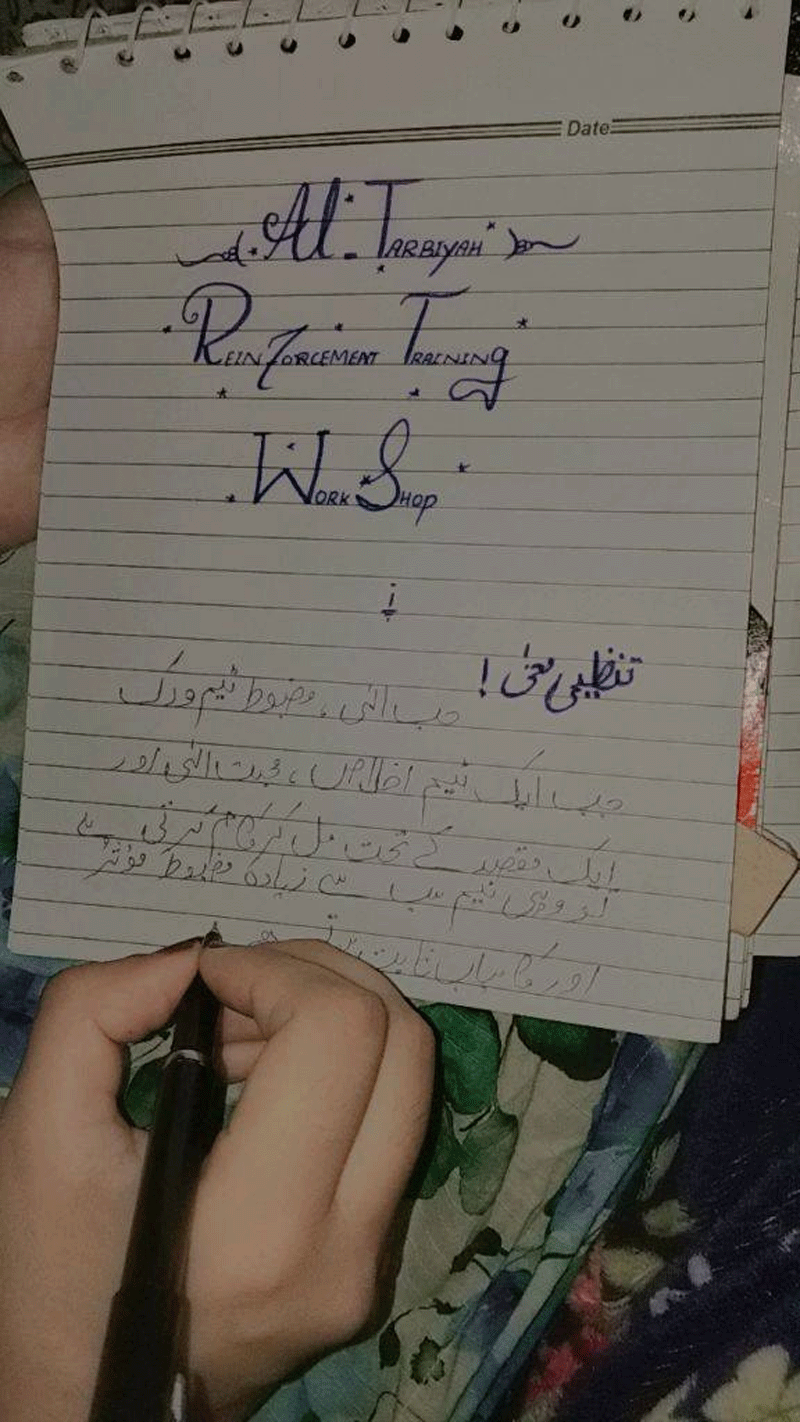 Date
Al-Tarbiyah
Reinforcement Training
Work Shop
تنظیمی معنٰی !
حب الٰہی، مضبوط ٹیم ورک
جب ایک ٹیم اخلاص، محبت الٰہی اور
ایک مقصد کے تحت مل کر کام کرتی ہے
تو وہی ٹیم سب سے زیادہ مضبوط مؤثر
اور کامیاب ثابت ہوتی ہے